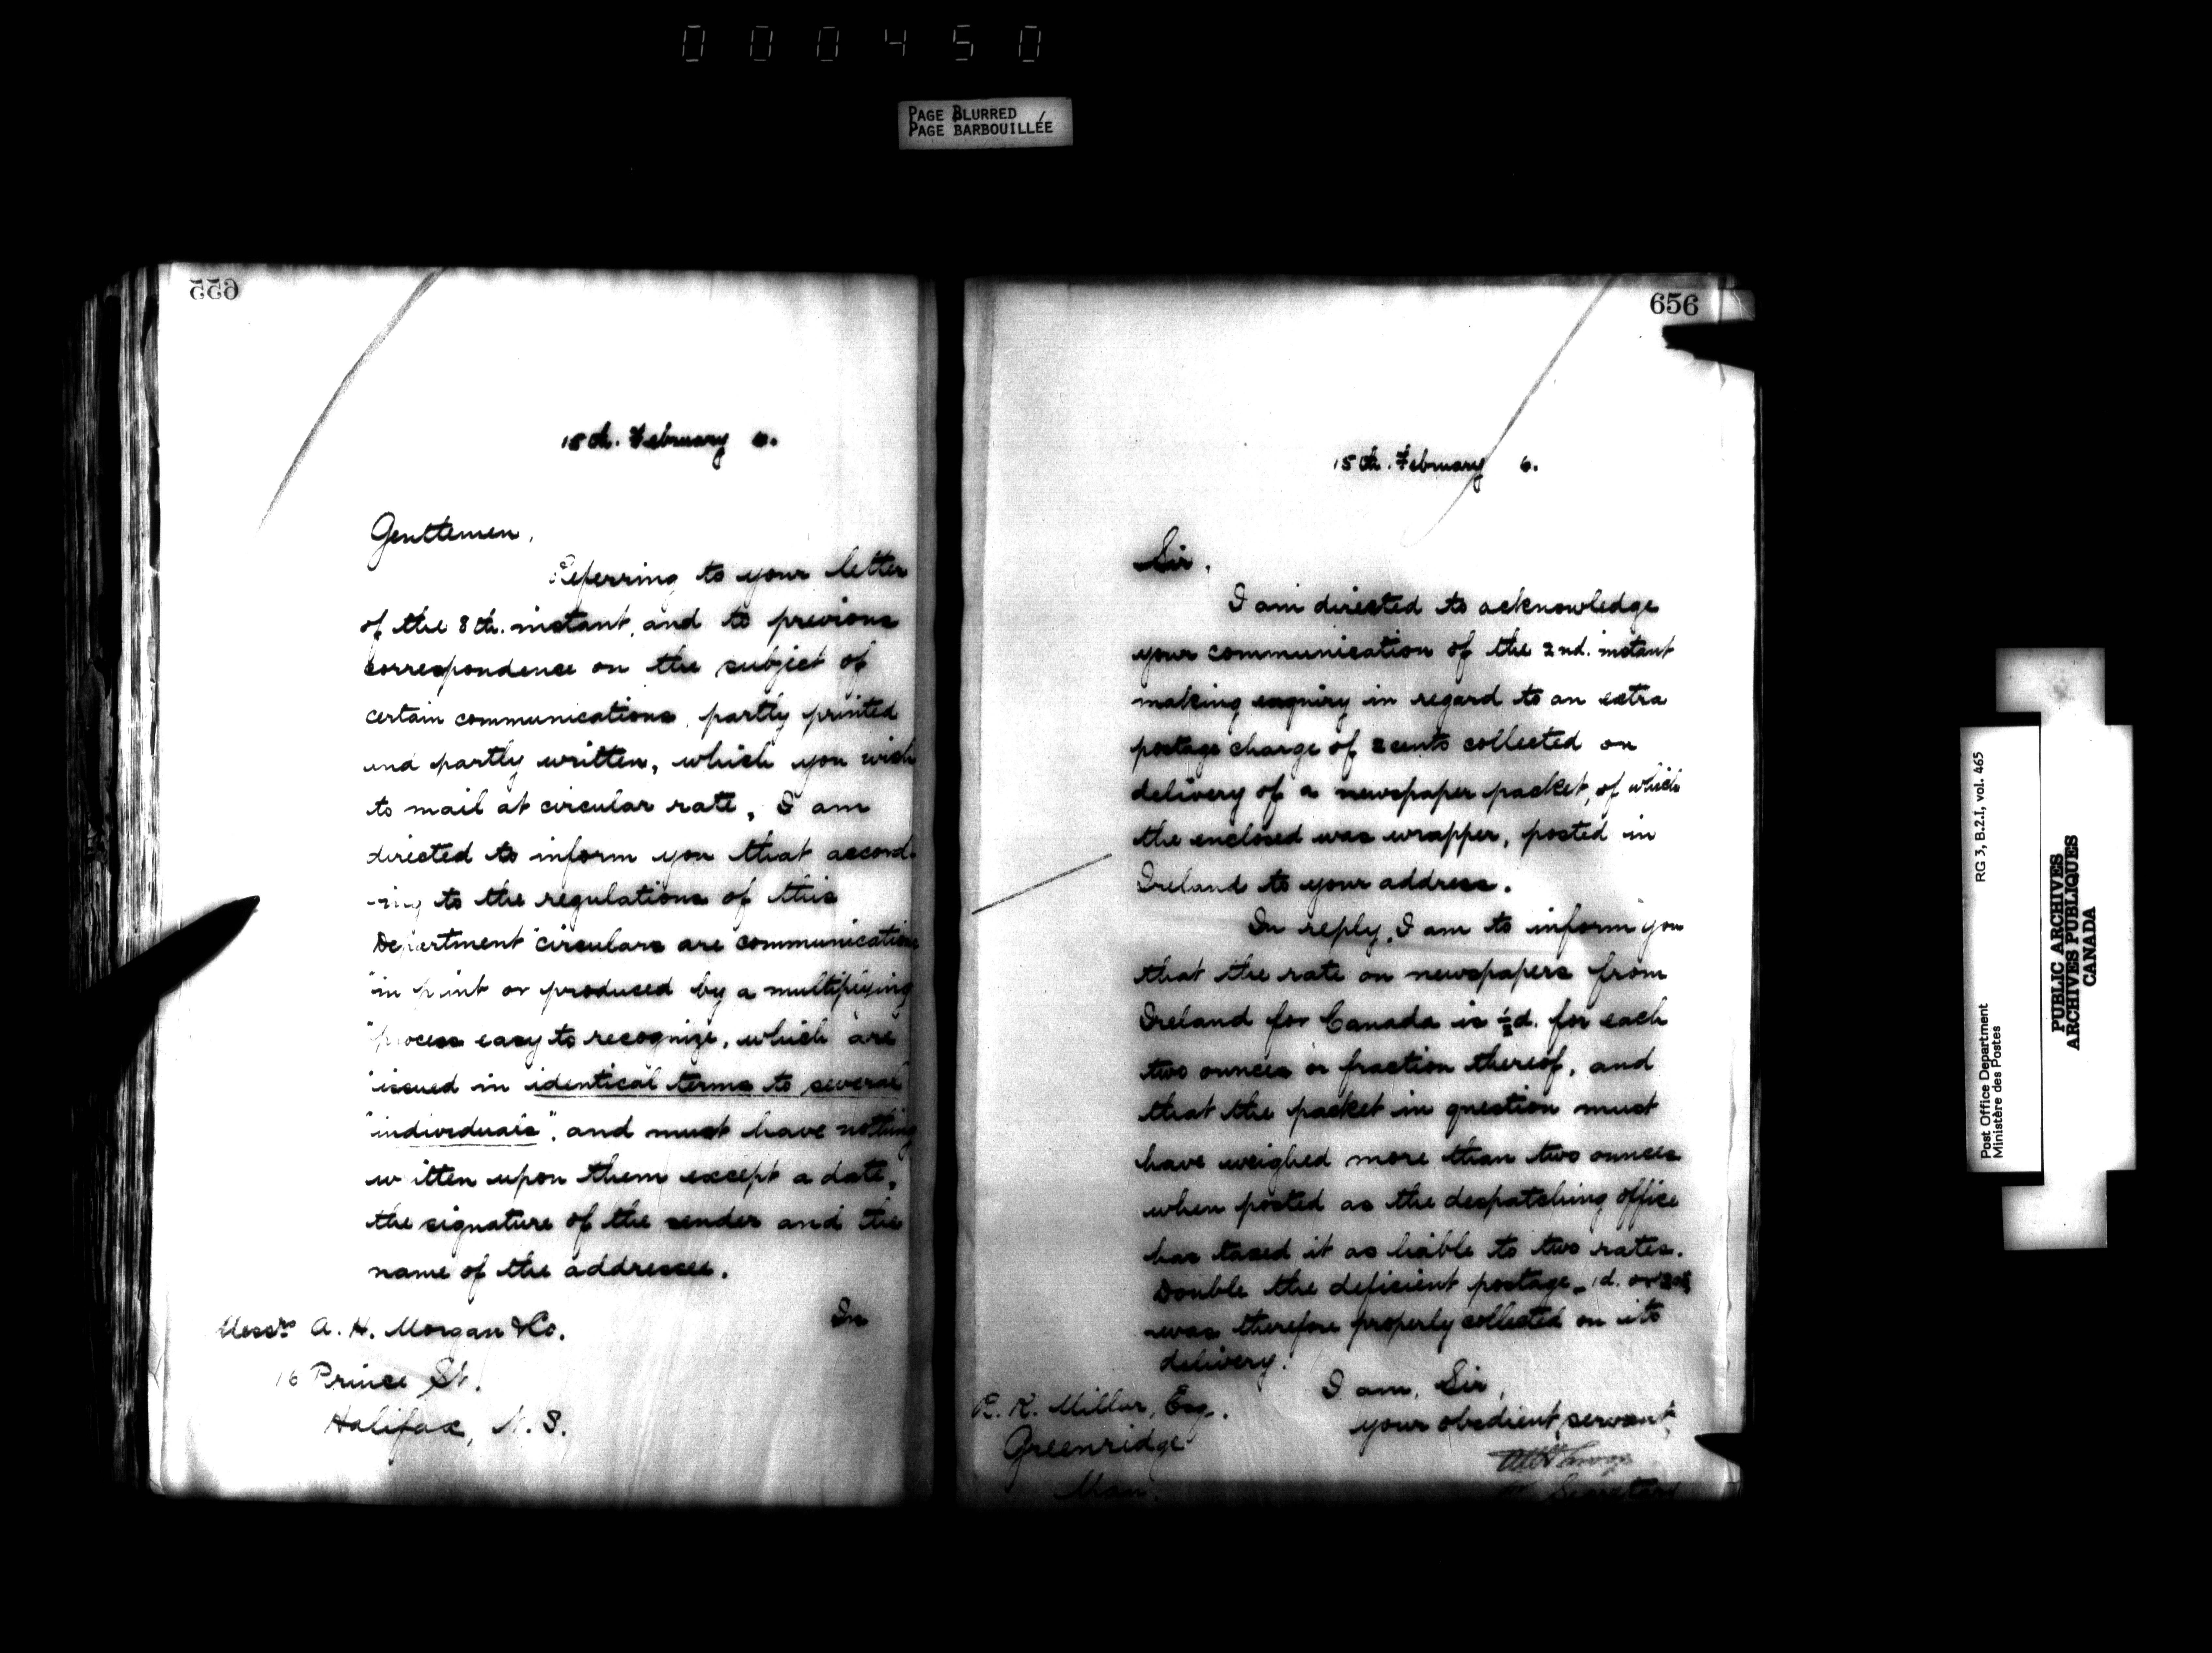 000450
PAGE BLURRED
PAGE BARBOUILLÉE
655
15th. February 6.
Gentlemen,
Referring to your letter
of the 8th. instant, and to previous
correspondence on the subject of
certain communications, partly printed
and partly written, which you wish
to mail at circular rate, I am
directed to inform you that accord-
-ing to the regulations of this
Department "circulars are communications
"in print or produced by a multiplying
"process easy to recognize, which are
"issued in identical terms to several
"individuals", and must have nothing
written upon them except a date,
the signature of the sender and the
name of the addressee.
In
Messrs A. H. Morgan & Co.
16 Prince St.
Halifax, N. S.
656
15th. February 6.
Sir,
I am directed to acknowledge
your communication of the 2nd. instant
making enquiry in regard to an extra
postage charge of 2 cents collected on
delivery of a newspaper packet, of which
the enclosed was wrapper, posted in
Ireland to your address.
In reply, I am to inform you
that the rate on newspapers from
Ireland for Canada is ½d. for each
two ounces or fraction thereof, and
that the packet in question must
have weighed more than two ounces
when posted as the despatching office
has taxed it as liable to two rates.
Double the deficient postage - 1d. or
was therefore properly collected on its
delivery.
I am, Sir,
your obedient servant,
Secretary
R. K. Millar, Esq.
Greenridge
Man.
Post Office Department
Ministère des Postes
RG 3, B.2.I, vol. 465
PUBLIC ARCHIVES
ARCHIVES PUBLIQUES
CANADA